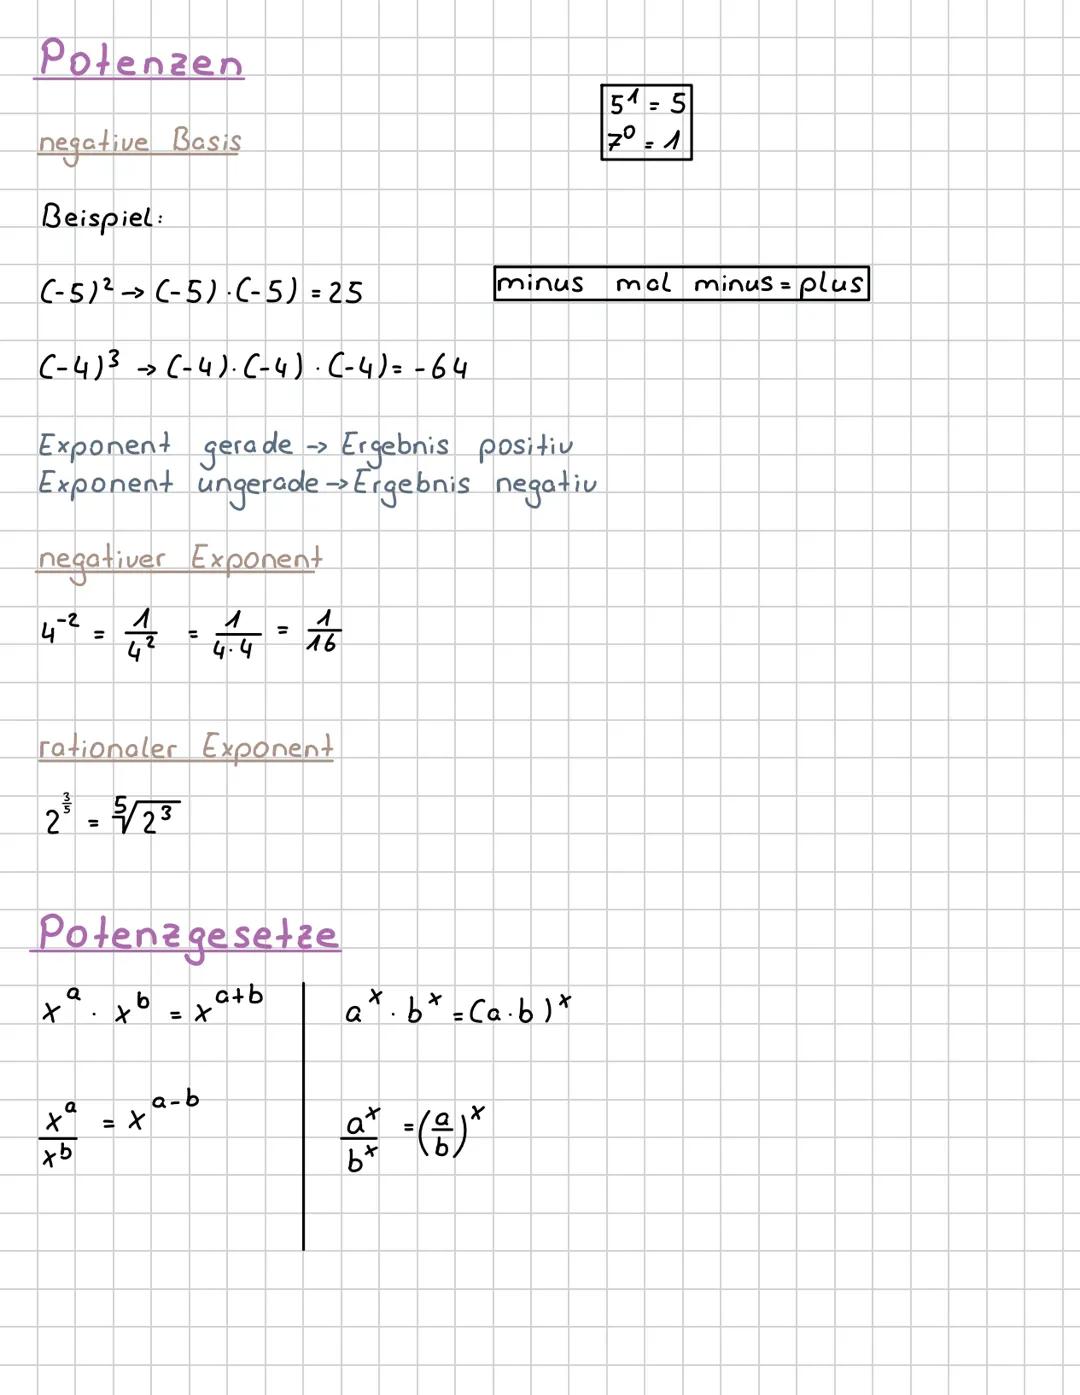 Potenzen
5¹ = 5
7⁰ = 1
negative Basis
Beispiel:
(-5)² → (-5) · (-5) = 25
minus mal minus = plus
(-4)³ → (-4) · (-4) · (-4) = -64
Exponent gerade → Ergebnis positiv
Exponent ungerade → Ergebnis negativ
negativer Exponent
4⁻² = 1/4² = 1/(4·4) = 1/16
rationaler Exponent
2^(3/5) = ⁵√2³
Potenzgesetze
x^a · x^b = x^(a+b)
a^x · b^x = (a·b)^x
x^a/x^b = x^(a-b)
a^x/b^x = (a/b)^x